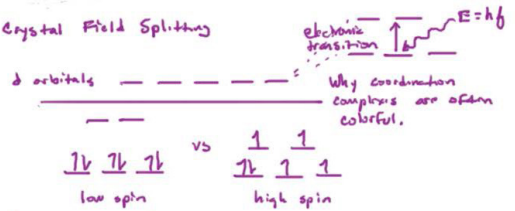 Crystal Field Splitting
electronic
transition
E=hf
d orbitals
Why coordination
complexes are often
colorful.
vs
low spin
high spin